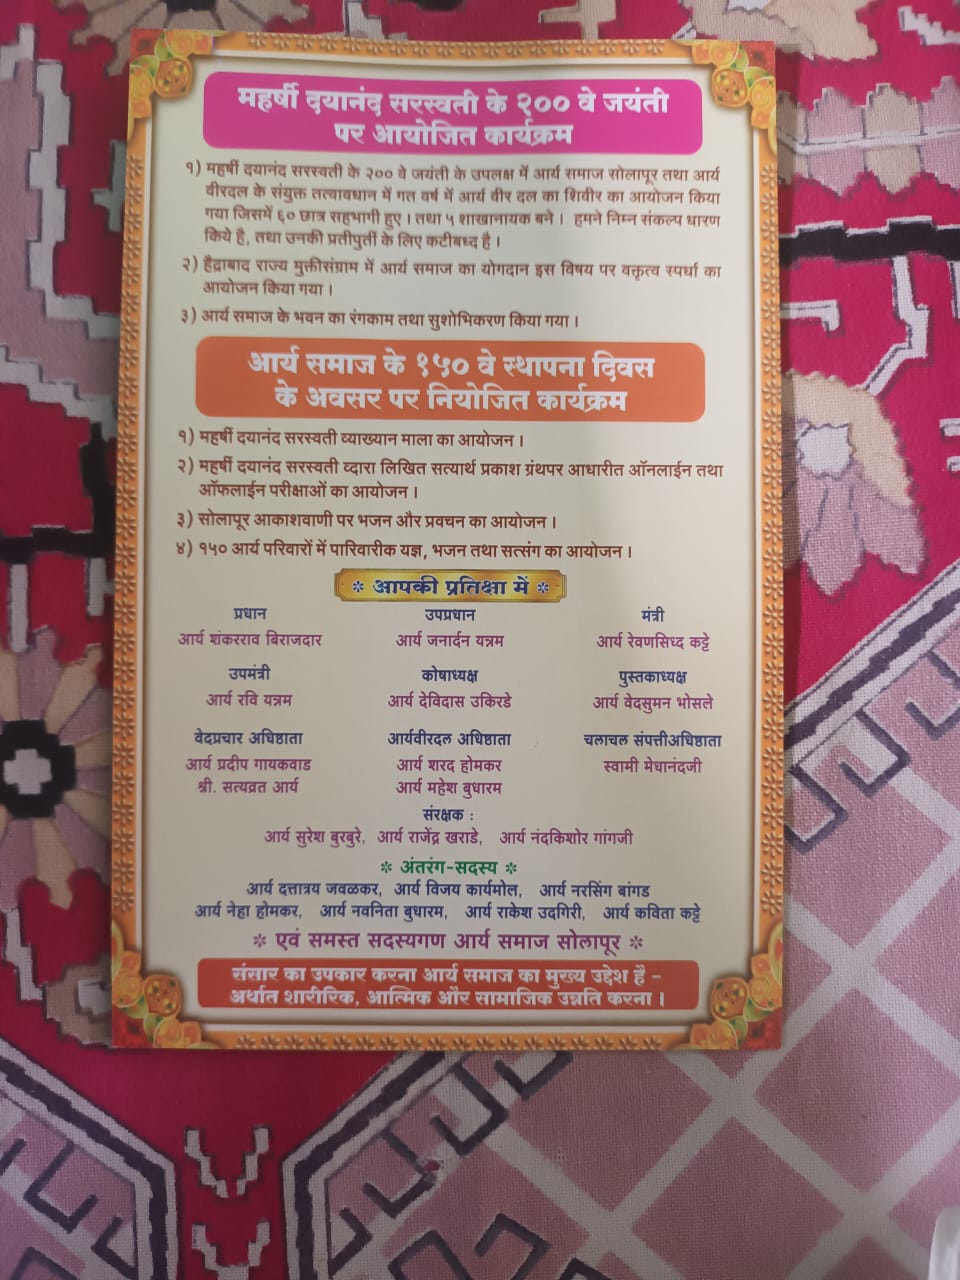 महर्षी दयानंद सरस्वती के २०० वे जयंती
पर आयोजित कार्यक्रम
१) महर्षी दयानंद सरस्वती के २०० वे जयंती के उपलक्ष में आर्य समाज सोलापूर तथा आर्य
वीरदल के संयुक्त तत्वावधान में गत वर्ष में आर्य वीर दल का शिवीर का आयोजन किया
गया जिसमें ६० छात्र सहभागी हुए । तथा ५ शाखानायक बने । हमने निम्न संकल्प धारण
किये है, तथा उनकी प्रतीपुर्ती के लिए कटीबध्द है ।
२) हैद्राबाद राज्य मुक्तीसंग्राम में आर्य समाज का योगदान इस विषय पर वक्तृत्व स्पर्धा का
आयोजन किया गया ।
३) आर्य समाज के भवन का रंगकाम तथा सुशोभिकरण किया गया ।
आर्य समाज के १५० वे स्थापना दिवस
के अवसर पर नियोजित कार्यक्रम
१) महर्षी दयानंद सरस्वती व्याख्यान माला का आयोजन ।
२) महर्षी दयानंद सरस्वती व्दारा लिखित सत्यार्थ प्रकाश ग्रंथपर आधारीत ऑनलाईन तथा
ऑफलाईन परीक्षाओं का आयोजन ।
३) सोलापूर आकाशवाणी पर भजन और प्रवचन का आयोजन ।
४) १५० आर्य परिवारों में पारिवारीक यज्ञ, भजन तथा सत्संग का आयोजन ।
* आपकी प्रतिक्षा में *
प्रधान उपप्रधान मंत्री
आर्य शंकरराव बिराजदार आर्य जनार्दन यन्नम आर्य रेवणसिध्द कट्टे
उपमंत्री कोषाध्यक्ष पुस्तकाध्यक्ष
आर्य रवि यन्नम आर्य देविदास उकिरडे आर्य वेदसुमन भोसले
वेदप्रचार अधिष्ठाता आर्यवीरदल अधिष्ठाता चलाचल संपत्तीअधिष्ठाता
आर्य प्रदीप गायकवाड आर्य शरद होमकर स्वामी मेधानंदजी
श्री. सत्यव्रत आर्य आर्य महेश बुधारम
संरक्षक :
आर्य सुरेश बुरबुरे, आर्य राजेंद्र खराडे, आर्य नंदकिशोर गांगजी
* अंतरंग-सदस्य *
आर्य दत्तात्रय जवळकर, आर्य विजय कार्यमोल, आर्य नरसिंग बांगड
आर्य नेहा होमकर, आर्य नवनिता बुधारम, आर्य राकेश उदगिरी, आर्य कविता कट्टे
* एवं समस्त सदस्यगण आर्य समाज सोलापूर *
संसार का उपकार करना आर्य समाज का मुख्य उद्देश है -
अर्थात शारीरिक, आत्मिक और सामाजिक उन्नति करना ।